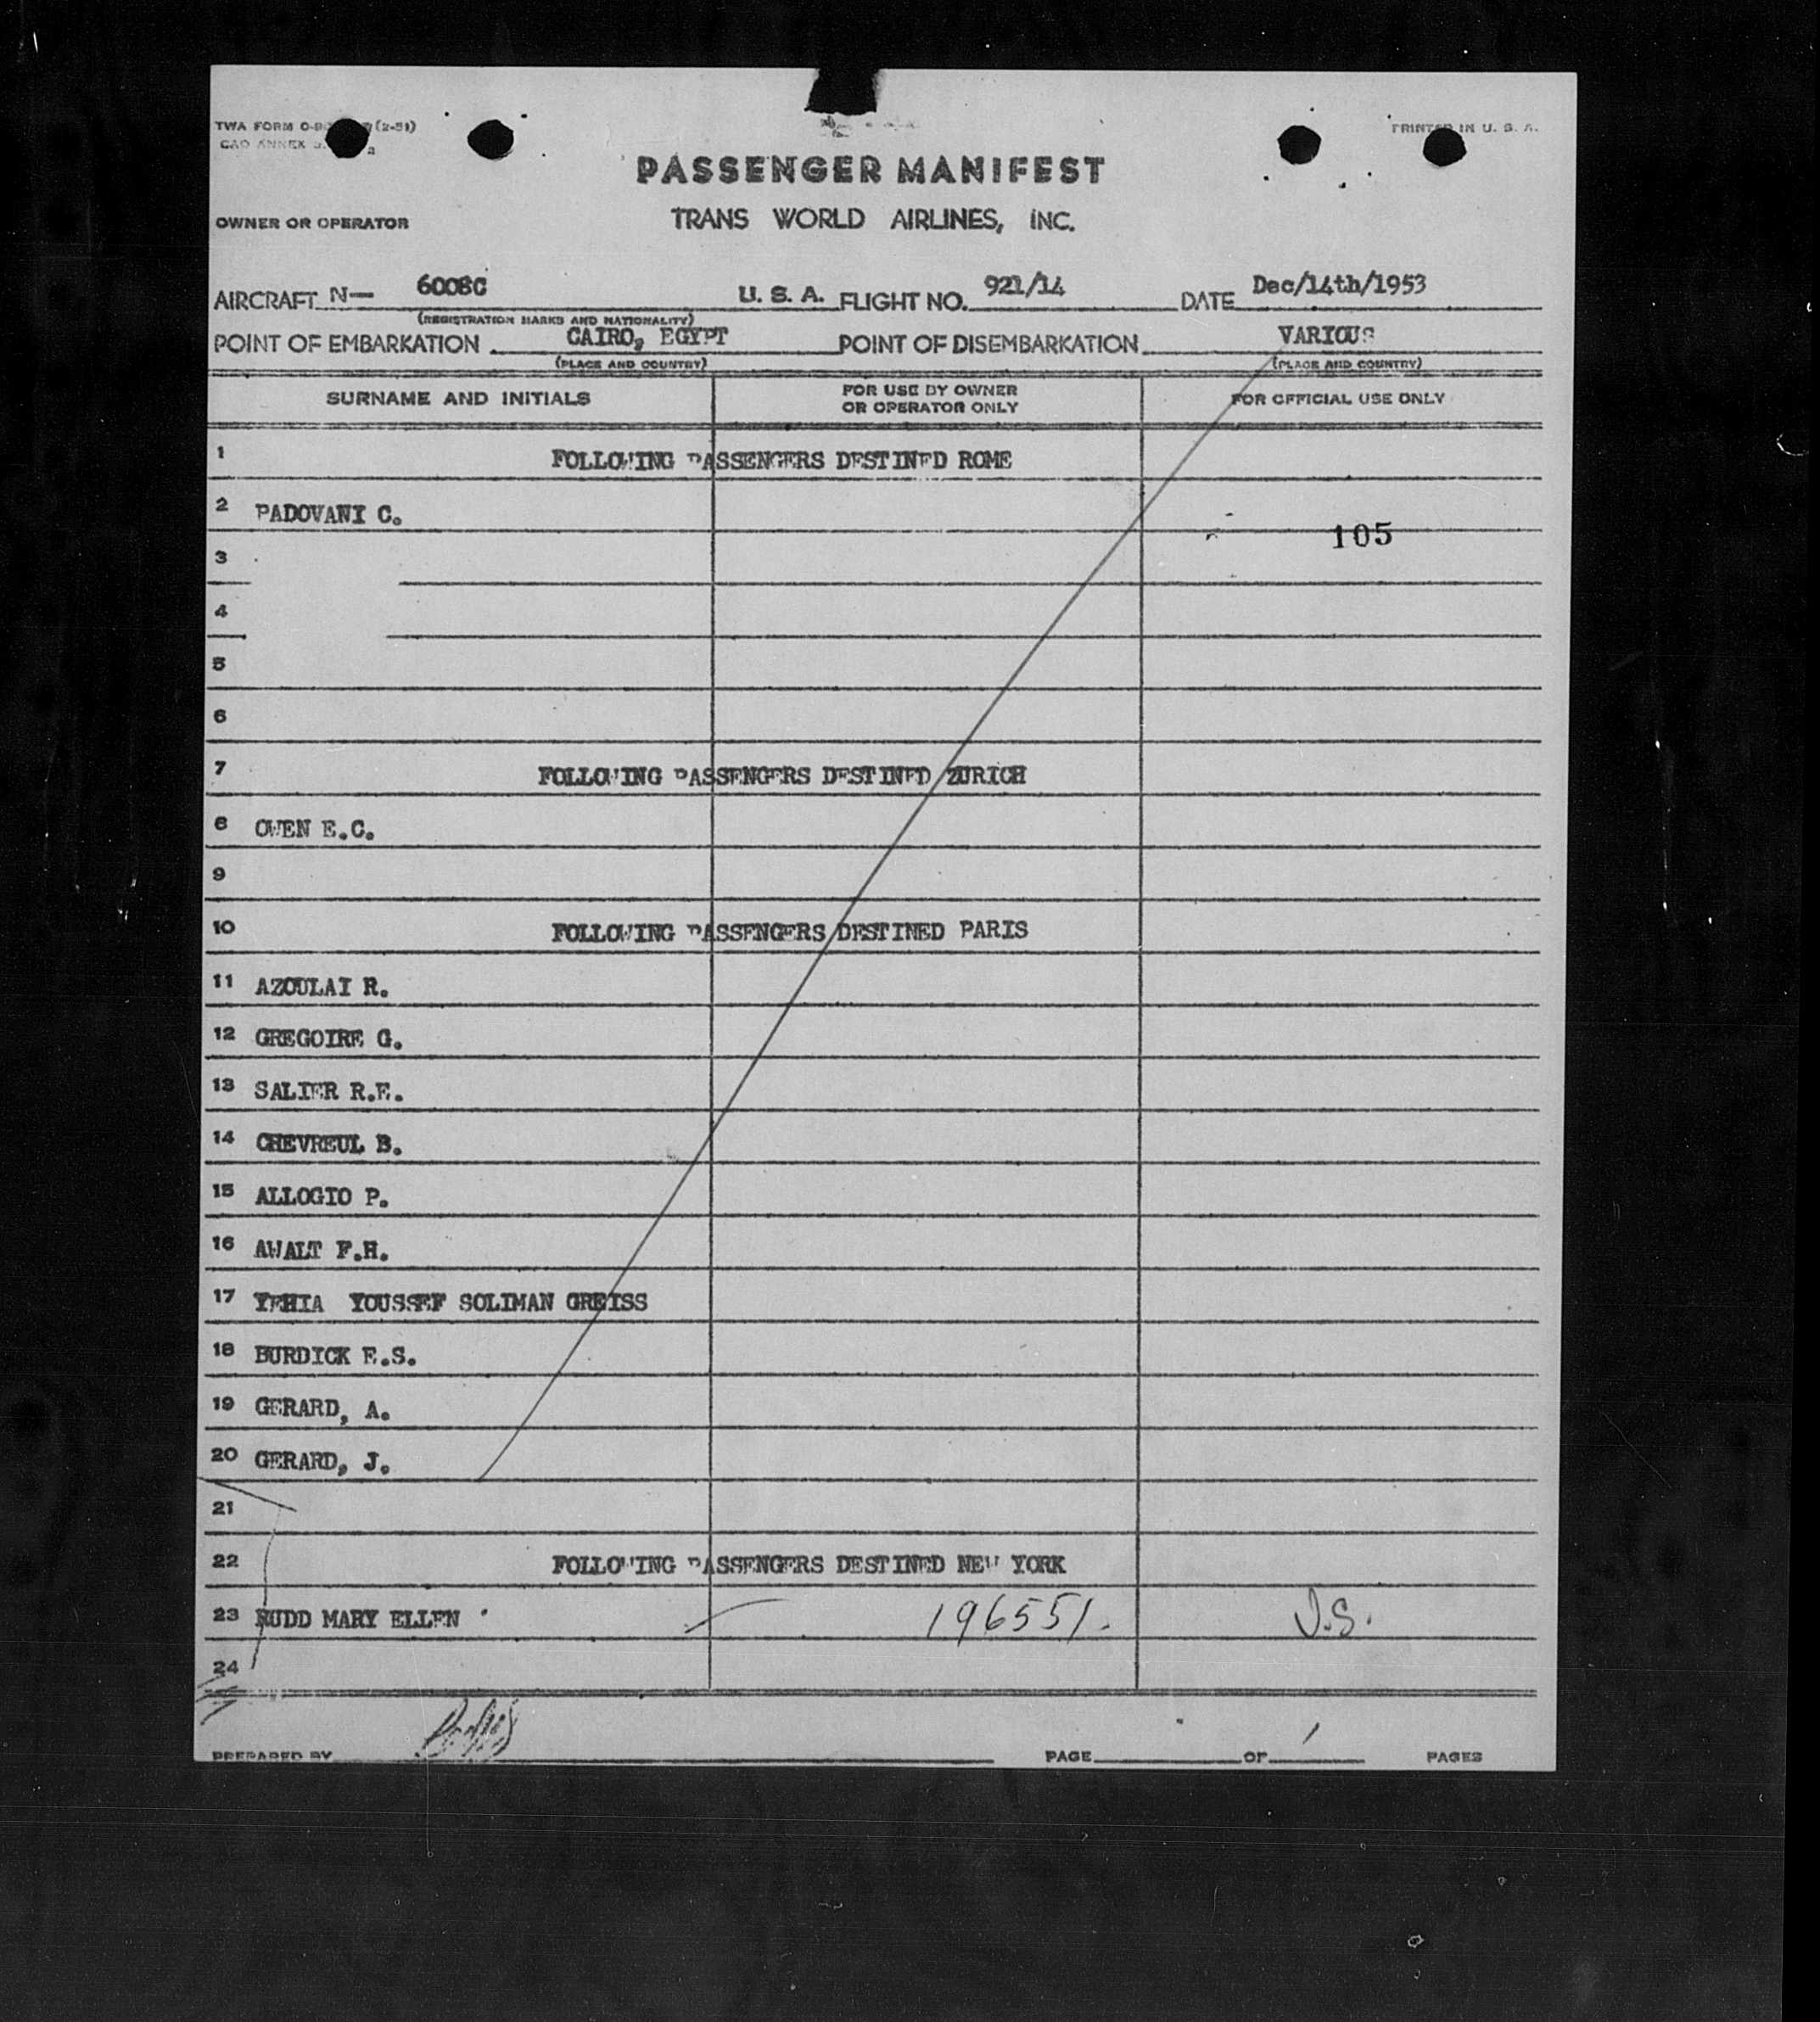 TWA FORM (2-51)
PRINTED IN U. S. A.
CAO ANNEX
PASSENGER MANIFEST
OWNER OR OPERATOR TRANS WORLD AIRLINES, INC.
AIRCRAFT N— 6008C U. S. A. FLIGHT NO. 921/14 DATE Dec/14th/1953
(REGISTRATION MARKS AND NATIONALITY)
POINT OF EMBARKATION CAIRO, EGYPT POINT OF DISEMBARKATION VARIOUS
(PLACE AND COUNTRY) (PLACE AND COUNTRY)
SURNAME AND INITIALS FOR USE BY OWNER OR OPERATOR ONLY FOR OFFICIAL USE ONLY
1 FOLLOWING PASSENGERS DESTINED ROME
2 PADOVANI C.
105
3
4
5
6
7 FOLLOWING PASSENGERS DESTINED ZURICH
8 OWEN E.C.
9
10 FOLLOWING PASSENGERS DESTINED PARIS
11 AZOULAI R.
12 GREGOIRE G.
13 SALIER R.E.
14 CHEVREUL B.
15 ALLOGIO P.
16 AWALT F.H.
17 YEHIA YOUSSEF SOLIMAN GREISS
18 BURDICK E.S.
19 GERARD, A.
20 GERARD, J.
21
22 FOLLOWING PASSENGERS DESTINED NEW YORK
23 RUDD MARY ELLEN 196551. U.S.
24
PREPARED BY PAGE OF 1 PAGES